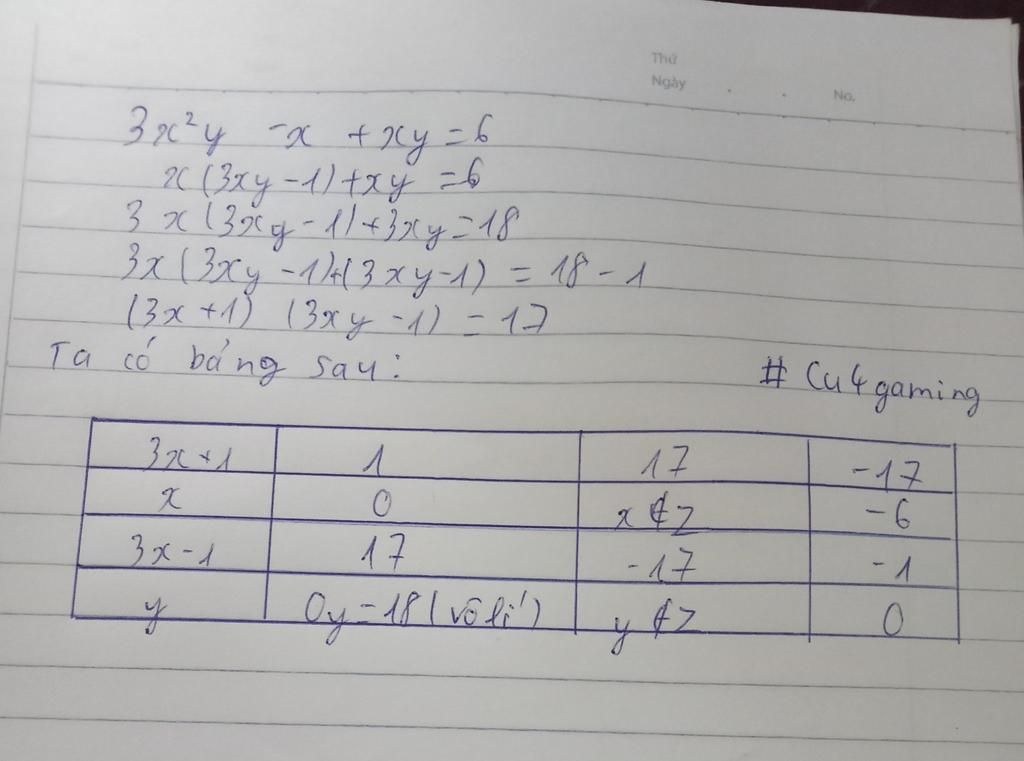 Thứ
Ngày . . No.
3x²y -x + xy = 6
x(3xy-1)+xy = 6
3x(3xy-1)+3xy=18
3x(3xy-1)+(3xy-1) = 18-1
(3x+1) (3xy-1) = 17
Ta có bảng sau:
# Cu4gaming
3x+1 1 17 -17
x 0 x∉Z -6
3x-1 17 -17 -1
y 0y=18(vô lí) y∉Z 0